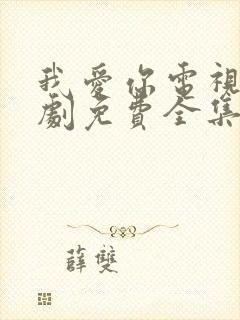 我愛你電視
劇免費全集
薛雙